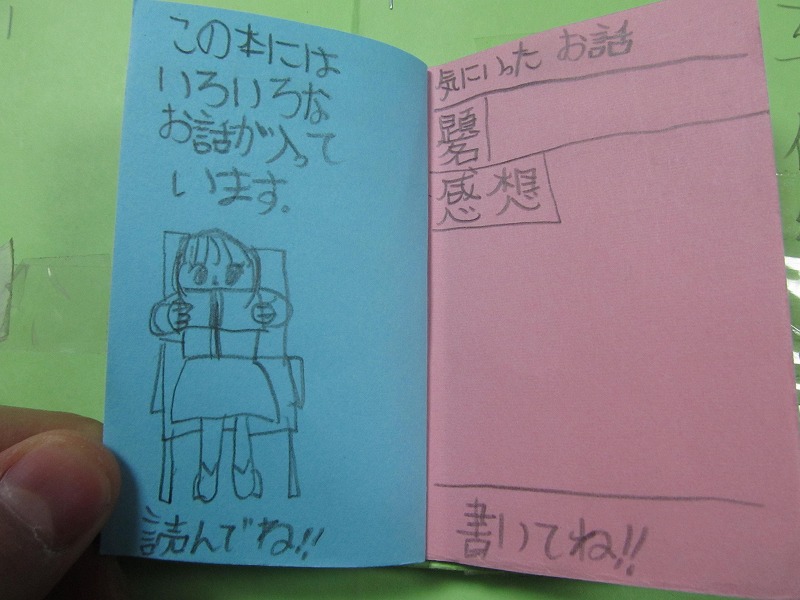 この本には
いろいろな
お話が入って
います。
読んでね!!
気にいった お話
題名
感想
書いてね!!